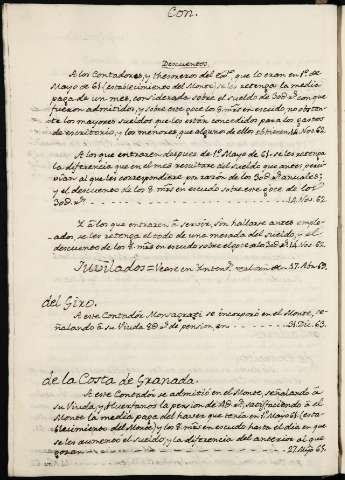 Con.
Descuentos
A los Contadores, y Thesoreros del Exto. que lo eran en 1º de
Mayo de 61 (establecimiento del Monte) se les retenga la media
paga de un mes, considerada sobre el sueldo de 30d rs. con que
fueron admitidos, y sobre este goce los 8 mrs en escudo, no obstan-
te los mayores sueldos que les estén concedidos para los gastos
de escritorio, y los menores, que alguno de ellos obtiene 14 Nov. 62.
A los que entraren después de 1º Mayo de 61. se les retenga
la diferencia que en el mes resultare del sueldo que antes perci-
vían al que les correspondiere en razon de los 30d rs. anuales;
y el descuento de los 8 mrs en escudo sobre este goce de los
30d rs. - - - 14 Nov. 62.
Y á los que entraren á servir, sin hallarse antes emple-
ados, se les retenga el todo de una mesada del sueldo, y el
descuento de los 8 mrs en escudo sobre el goce a los 30d rs. 14 Nov. 62.
Juvilados = Vease en Yntend. real orn. de - 17. Abr. 69.
del Giro.
A este Contador Monsagrati se incorporó en el Monte, se-
ñalando á su Viuda 8d rs. de pension, en - - - 21. Dic. 63.
de la Costa de Granada.
A este Contador se admitió en el Monte, señalando á
su Viuda, y Huerfanos la pension de 4d rs., satisfaciendo á el
Monte la media paga del haver que tenía en 1º Mayo 61 (esta-
blecimiento del Monte) y los 8 mrs en escudo hasta el día en que
se les aumentó el sueldo, y la diferencia del anterior al que
gozan - - - 27. Mzo 65.